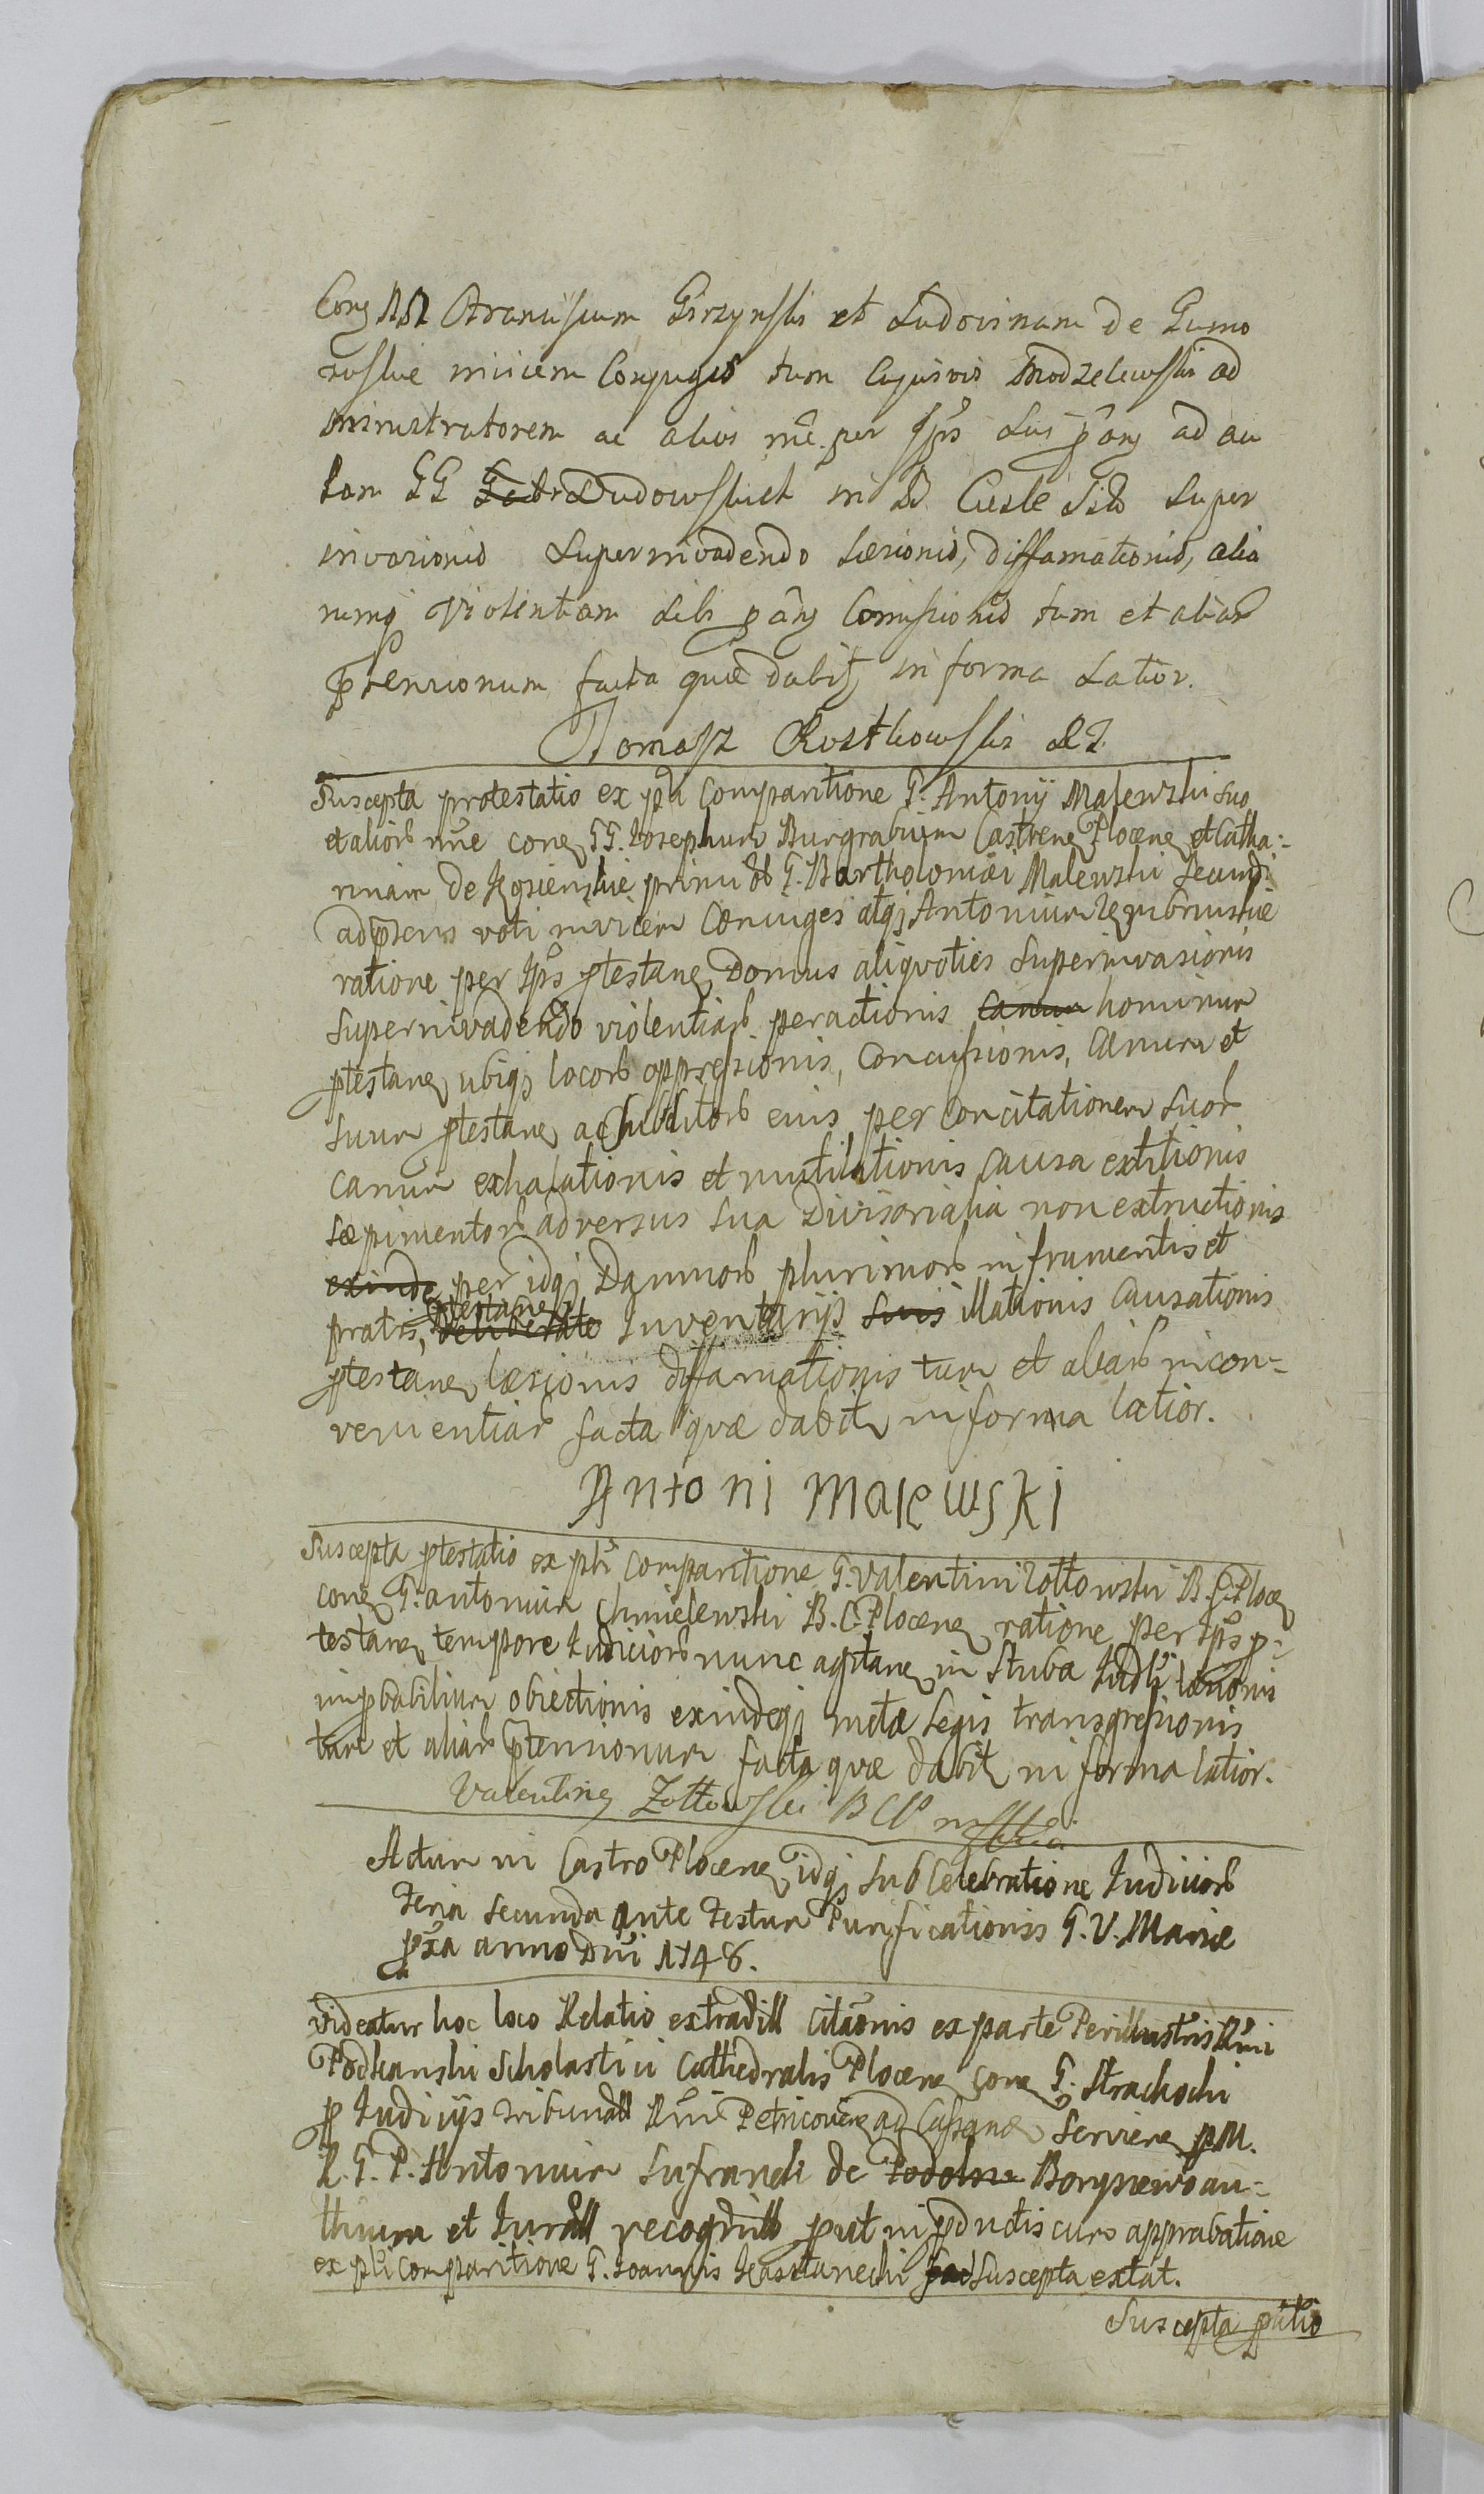 Conq MM Franciscum Girzynski et Ludovinam de Gumo
wskie invicem Conjuges tum Cujusvis Modzelewski ad
ministratorem ac alios nne per Ipsos Lus ad au
lam GG Dudowskich in Ciesle sito super
invasionis superinvadendo læsionis, diffamationis, alia
rumq violentiam sibi Comissionis tum et aliar
prtensionum facta quæ dabitq in forma latior.
Tomasz Rostkowski
Suscepta protestatio ex prti comparitione G. Antonij Malewski suo
et alior nne conq GG. Josephum Burgrabium Castrenq Plocenq et Catha-
rinam de Kosienskie primi olt G. Bartholomæi Malewski secundi
ad prsens voti invicem coniuges atq Antonium
ratione per Ipsos ptestanq Domus aliquoties superinvasionis
superinvadendo violentiar peractionis canum hominum
ptestanq ubiq locor oppressionis, concussionis, canum et
suum ptestanq ac subditor eius per concitationem suor
canum exhalationis et mutilationis causa extitionis
sæpimentor adversus sua divisorialia non extructionis
exinde per idq damnor plurimor in frumentis et
pratis, deliberate ptestanq Inventarijs suis illationis causationis
ptestanq læsionis diffamationis tum et aliar incon-
venientiar facta quæ dabitq in forma latior.
Antoni Malewski
Suscepta ptestatio ex prti comparitione G. Valentini Zottowski B. C. Plocq
conq G. Antonium Chmielewski B. C. Plocenq ratione per Ipsos p-
testanq tempore Judicior nunc agitanq in stuba Judli læsionis
improbabilium obiectionis exindeq metæ legis transgressionis
tum et aliar prtensionum facta quæ dabitq in forma latior.
Valentinq Zottowski BCP mppria
Actum in Castro Plocenq idq sub celebratione Judicior
Feria secunda ante Festum Purificationis G. V. Mariæ
pxa anno Dni 1748.
Videatur hoc loco Relatio extradill citaonis ex parte Perillustris Rmi
Podkanski Scholastici Cathedralis Plocenq conq G. Strachocki
p Judicijs Tribunall Rni Petricovienq ad Cassanq servienq p M.
R. G. P. Antonium Sufranek de Podolsze Boryszewo au-
thum et Jurall recognitb prut in pductis cum approbatione
ex prti comparitione G. Joannis Kasztunecki fac suscepta extat.
Suscepta ptatio